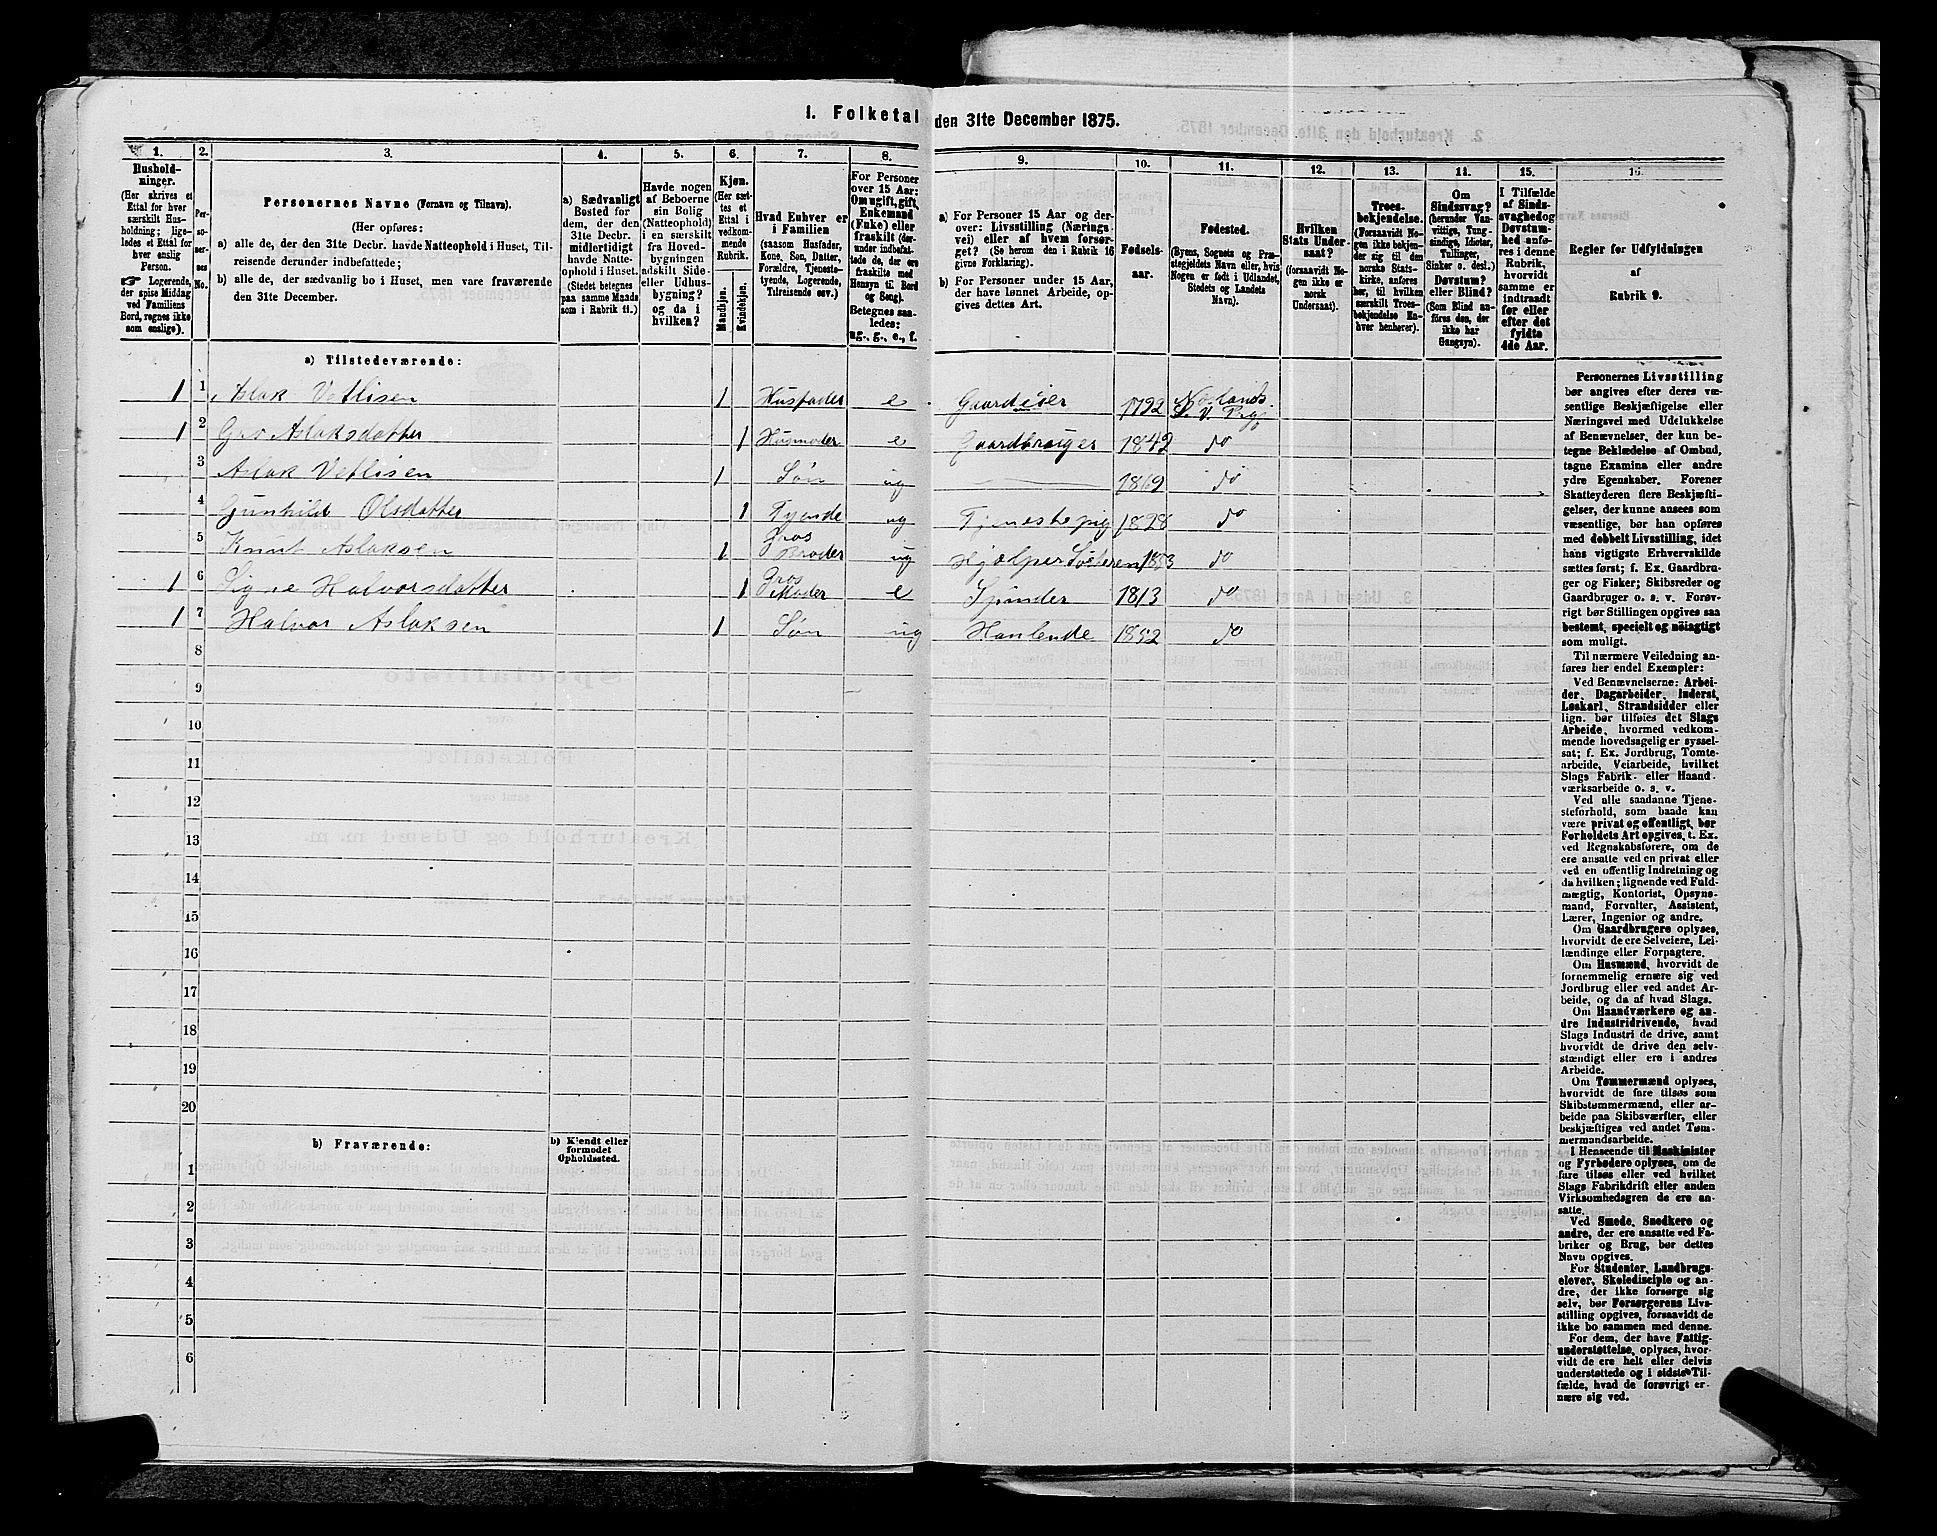 1. Folketal den 31te December 1875.
1. 2. 3. 4. 5. 6. 7. 8. 9. 10. 11. 12. 13. 14. 15. 16.
Hushold-
ninger.
(Her skrives et
Ettal for hver
særskilt Hus-
holdning; lige-
ledes et Ettal for
hver enslig
Person.
☞ Logerende,
der spise Middag
ved Familiens
Bord, regnes ikke
som enslige).
Per-
so-
ner-
nes
No.
Personernes Navne (Fornavn og Tilnavn).
(Her opføres:
a) alle de, der den 31te Decbr. havde Natteophold i Huset, Til-
reisende derunder indbefattede;
b) alle de, der sædvanlig bo i Huset, men vare fraværende
den 31te December.
a) Sædvanligt
Bosted for
dem, der den
31te Decbr.
midlertidigt
havde Natte-
ophold i Huset.
(Stedet betegnes
paa samme Maade
som i Rubrik 11.)
Havde nogen
af Beboerne
sin Bolig
(Natteophold)
i en særskilt
fra Hoved-
bygningen
adskilt Side-
eller Udhus-
bygning?
og da i
hvilken?
Kjøn.
(Her sæt-
tes et
Ettal i
vedkom-
mende
Rubrik.
Mandkjøn.
Kvindekjøn.
Hvad Enhver er
i Familien
(saasom Husfader,
Kone, Søn, Datter,
Forældre, Tjeneste-
tyende, Logerende,
Tilreisende osv.)
For Personer
over 15 Aar:
Om ugift, gift,
Enkemand
(Enke) eller
fraskilt (der-
under indbefat-
tede de, der ere
fraskilte med
Hensyn til Bord
og Seng).
Betegnes saa-
ledes:
ug., g., e., f.
a) For Personer 15 Aar og der-
over: Livsstilling (Nærings-
vei) eller af hvem forsør-
get? (Se herom den i Rubrik 16
givne Forklaring).
b) For Personer under 15 Aar,
der have lønnet Arbeide, op-
gives dettes Art.
Fødsels-
aar.
Fødested.
(Byens, Sognets og Præ-
stegjeldets Navn eller, hvis
Nogen er født i Udlandet,
Stedets og Landets
Navn).
Hvilken
Stats Under-
saat?
(forsaavidt No-
gen ikke er
norsk
Undersaat).
Troes-
bekjendelse.
(Forsaavidt No-
gen ikke bekjen-
der sig til den
norske Stats-
kirke, anføres
her, til hvilken
særskilt Troes-
bekjendelse En-
hver henhører).
Om
Sindssvag?
(herunder Van-
vittige, Tung-
sindige, Idioter,
Tullinger,
Sinker o. desl.)
Døvstum?
eller Blind?
(Som Blind an-
føres den, der
ikke har
Gangsyn).
I Tilfælde
af Sinds-
svaghed og
Døvstum-
hed anfø-
res i denne
Rubrik,
hvorvidt
samme er
indtraadt
før eller
efter det
fyldte
4de Aar.
Regler for Udfyldningen
af
Rubrik 9.
a) Tilstedeværende:
1 1 Aslak Vetlisen 1 Husfader e Gaardeier 1792
1 2 Gro Aslaksdatter 1 Husmoder e Gaardbruger 1842 do
3 Aslak Vetlisen 1 Søn ug 1869 do
4 Gunhild Olsdatter 1 Tyende ug Tjenestepig 1828 do
5 Knut Aslaksen 1 Gros Broder ug Hjælper Søsteren 1853 do
1 6 Signe Halvorsdatter 1 Gros Moder e Spinder 1813 do
1 7 Halvor Aslaksen 1 Søn ug 1852 do
8
9
10
11
12
13
14
15
16
17
18
19
20
b) Fraværende:
b) Kjendt eller
formodet
Opholdssted.
1
2
3
4
5
6
Personernes Livsstilling
bør angives efter deres væ-
sentlige Beskjæftigelse eller
Næringsvei med Udelukkelse
af Benævnelser, der kun be-
tegne Beklædelse af Ombud,
tagne Examina eller andre
ydre Egenskaber. Forener
Skatteyderen flere Beskjæfti-
gelser, der kunne ansees som
væsentlige, bør han opføres
med dobbelt Livsstilling, idet
hans vigtigste Erhvervskilde
sættes først; f. Ex. Gaardbru-
ger og Fisker; Skibsreder og
Gaardbruger o. s. v. Forøv-
rigt bør Stillingen opgives saa
bestemt, specielt og nöiagtigt
som muligt.
Til nærmere Veiledning an-
føres her endel Exempler:
Ved Benævnelserne: Arbei-
der, Dagarbeider, Inderst,
Løskarl, Strandsidder eller
lign. bør tilføies det Slags
Arbeide, hvormed vedkom-
mende hovedsagelig er syssel-
sat; f. Ex. Jordbrug, Tomte-
arbeide, Veiarbeide, hvilket
Slags Fabrik- eller Haand-
værksarbeide o. s. v.
Ved alle saadanne Tjene-
steforhold, som baade kan
være privat og offentligt, bør
Forholdets Art opgives, t. Ex.
ved Regnskabsførere, om de
ere ansatte ved en privat eller
ved en offentlig Indretning og
da hvilken; lignende ved Fuld-
mægtig, Kontorist, Opsyns-
mand, Forvalter, Assistent,
Lærer, Ingeniør og andre.
Om Gaardbrugere oplyses,
hvorvidt de ere Selveiere, Lei-
lændinge eller Forpagtere.
Om Husmænd, hvorvidt de
fornemmelig ernære sig ved
Jordbrug eller ved andet Ar-
beide, og da af hvad Slags.
Om Haandværkere og an-
dre Industridrivende, hvad
Slags Industri de drive, samt
hvorvidt de drive den selv-
stændigt eller ere i andres
Arbeide.
Om Tømmermænd oplyses,
hvorvidt de fare tilsøs som
Skibstømmermænd, eller ar-
beide paa Skibsværfter, eller
beskjæftiges ved andet Tøm-
mermandsarbeide.
I Henseende til Maskinister
og Fyrbødere oplyses, om de
fare tilsøs eller ved hvilket
Slags Fabrikdrift eller anden
Virksomhedsgren de ere an-
satte.
Ved Smede, Snedkere og
andre, der ere ansatte ved Fa-
briker og Brug, bør dettes
Navn opgives.
For Studenter, Landbrugs-
elever, Skoledisciple og an-
dre, der ikke forsørge sig
selv, bør Forsørgerens Livs-
stilling opgives, forsaavidt de
ikke bo sammen med denne.
For dem, der have Fattig-
understøttelse, oplyses, hvor-
vidt de ere helt eller delvis
understøttede og i sidste Til-
fælde, hvad de forøvrigt er-
nære sig ved.